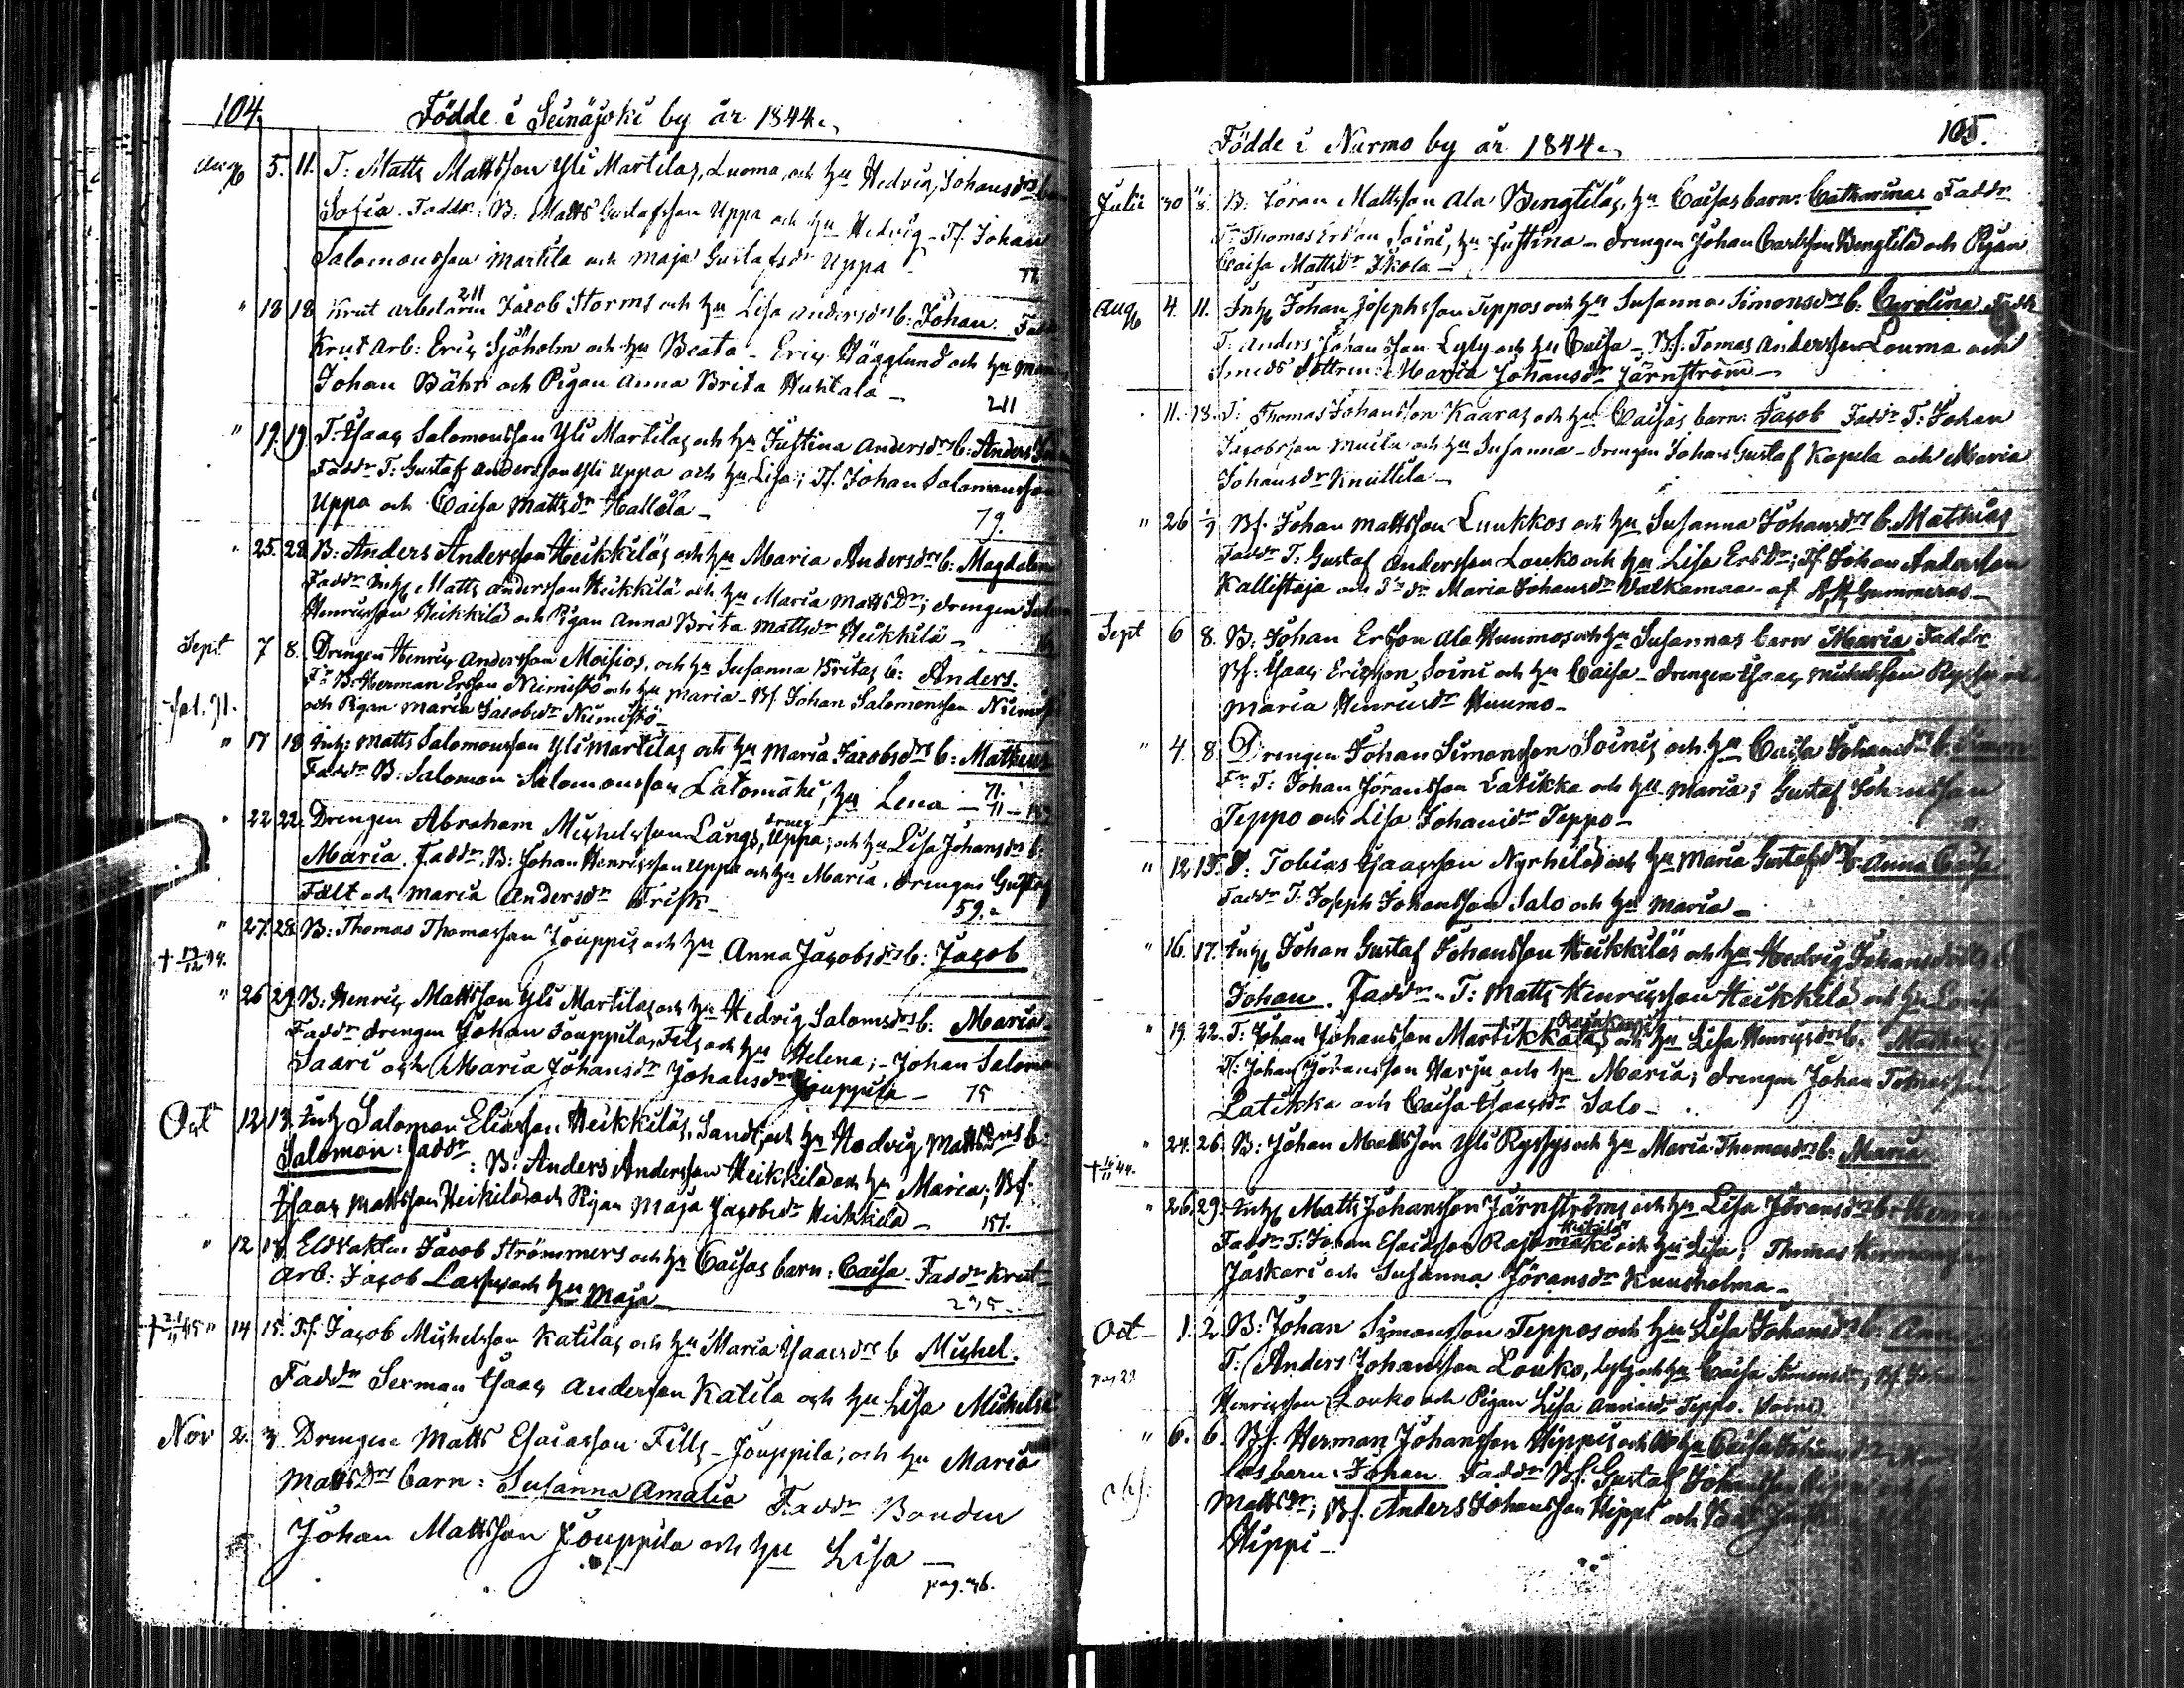 104.
Födde i Seinäjoki by år 1844.
Aug 5. 11. T: Matts Mattsson Yli Martilas, Luoma, och hu Hedvig Johansdrs
Sofia. Faddr: B: Matts Gustafsson Uppa och hu Hedvig - Tf. Johan
Salomonsson Martila och Maja Gustafsdr Uppa -
" 18 18 Krut arbetaren 211 Jacob Storms och hu Lisa Andersdrs b: Johan. Fadd
Krut Arb: Eric Sjöholm och hu Beata - Eric Hägglund och hu
Johan Bähr och Pigan Anna Brita Huhtala -
211
" 19. 19. T: Isaac Salomonsson Yli Martilas och hu Justina Andersdrs b: Anders
Faddr T: Gustaf Andersson Yli Uppa och hu Lisa; Tf. Johan Salomonsson
Uppa och Caisa Mattsdr Hallila -
79.
" 25. 28. B: Anders Andersson Heikkiläs och hu Maria Andersdrs b: Magdalena
Faddr Inh Matts Andersson Heikkilä och hu Maria Mattsdr; drengen
Henricsson Heikkilä och Pigan Anna Brita Mattsdr Heikkilä -
Sept 7 8. Drengen Henric Andersson Moisios, och hu Susanna Britas b: Anders.
Fr B: Herman Ersson Niemistö och hu Maria - Bf. Johan Salomonsson
och Pigan Maria Jacobsdr Niemistö -
" 17 18 Inh: Matts Salomonsson Yli Martilas och hu Maria Jacobsdrs b: Matheus
Faddr B: Salomon Salomonsson Latomäki, hu Lena -
71.
" 22 22. Drengen Abraham Michelsson Långs, Uppa; och hu Lisa Johansdrs b:
Maria. Faddr. B: Johan Henricsson Uppa och hu Maria. drengen Gustaf
Fält och Maria Andersdr Frisk -
59.
" 27. 28. B: Thomas Thomasson Jouppis och hu Anna Jacobsdrs b: Jacob
" 26 29. B: Henric Mattsson Yli Martilas och hu Hedvig Salomsdrs b: Maria.
Faddr drengen Johan Jouppila, Fils och hu Helena; - Johan Salom
Saari och Maria Johansdr Johansdr Jouppila - 75
Oct 12 13. Inh Salomon Eliasson Heikkiläs, Sandt, och hu Hedvig Mattsdrs b:
Salomon: Faddr: B: Anders Andersson Heikkilä och hu Maria; Bf.
Isaac Mattsson Heikkilä och Pigan Maja Jacobsdr Heikkilä - 151.
" 12 Eldvakten Jacob Strömmers och hu Caisas barn: Caisa. Faddr Krut
Arb: Jacob och hu Maja -
" 14 15. Tf. Jacob Michelsson Katilas och hu Maria Isaacsdrs b Michel.
Faddr Isaac Andersson Katila och hu Lisa Michelsd
Nov 2. 3. Drengen Matts Esaiasson Fills - Jouppila; och hu Maria
Mattsdrs barn: Susanna Amalia Faddr Bonden
Johan Mattsson Jouppila och hu Lisa -
105.
Födde i Nurmo by år 1844.
Julii 30 B: Jöran Mattsson Ala Bengtiläs, hu Caisas barn: Catharina Faddr
Thomas Ersson Soini, hu Justina - drengen Johan Carlsson Bengtilä och Pigan
Caisa Mattsdr Ikola -
Aug 4. 11. Inh Johan Josephsson Teppos och hu Susanna Simonsdrs b: Carolina Faddr
T: Anders Johansson Lyly och hu Caisa - Bf. Tomas Andersson Louma och
Smeds dottren Maria Johansdr Järnström -
11. 18. T: Thomas Johansson Kaaras och hu Caisas barn: Jacob Faddr T: Johan
Jacobsson och hu Susanna - drengen Johan Gustaf Kapela och Maria
Johansdr Knuttila -
" 26 1/9 Bf. Johan Mattsson Luukkos och hu Susanna Johansdrs b. Mathias
Faddr T: Gustaf Andersson Louko och hu Lisa Ersdr; Tf Johan Andersson
Kallistaja och Maria Johansdr Valkamaa - af Gummerus -
Sept 6 8. B: Johan Ersson Ala Huumos och hu Susannas barn Maria Faddr
Bf: Isaac Ericsson Soini och hu Caisa - drengen Isaac Michelsson
Maria Henricsdr Huumo -
" 4. 8. Drengen Johan Simonsson Soinis och hu Caisa Johansdrs b. Simon
Fr T: Johan Jöransson Latikka och hu Maria; Gustaf Johansson
Teppo och Lisa Johansdr Teppo -
" 12. 15. B: Tobias Isaacsson Nyrhilä och hu Maria Gustafsdrs b: Anna Caisa
Faddr T: Joseph Johansson Salo och hu Maria -
" 16. 17. Inh Johan Gustaf Johansson Heikkiläs och hu Hedvig Johansdotters
Johan. Faddr T: Matts Henricsson Heikkilä och hu
" 19. 22. T: Johan Johansson Martikkala och hu Lisa Henricsdrs b.
Tf: Johan Jöransson Harju och hu Maria; drengen Johan Tomasson
Latikka och Caisa Isaacsdr Salo -
" 24. 26. B: Johan Mattsson Yli Ryssys och hu Maria Thomasdrs b: Maria
" 26. 29. Inh Matts Johansson Järnströms och hu Lisa Jöransdrs b: Herman
Faddr T: Johan Esaiasson Rasimäki och hu Lisa; Thomas Hermansson
Jaskari och Susanna Jöransdr Kuusholma -
Oct - 1. 2. B: Johan Simonsson Teppos och hu Lisa Johansdrs b. Anna
T: Anders Johansson Louko, Lyly och hu Caisa Simonsdr; Bf. Johan
Henricsson Louko och Pigan Lisa Teppo.
" 6. 6. Bf. Herman Johansson Hippis och hu Caisa
barn: Johan Faddr Bf. Gustaf Johansson
Mattsdr; Bf. Anders Johansson Hippi och
Hippi -